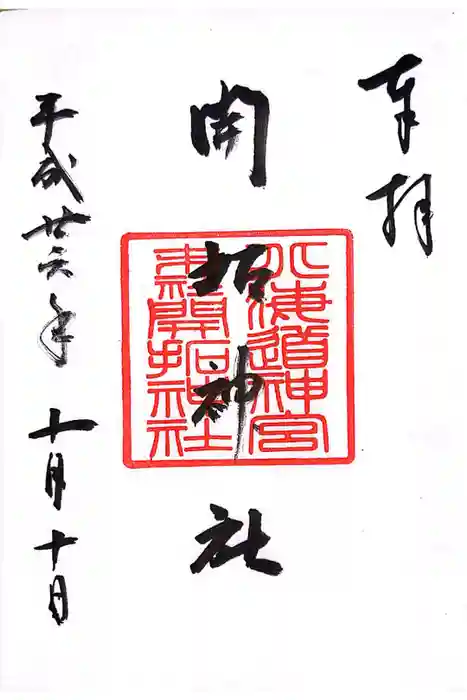 奉拝
開拓神社
北海道神宮
末社開拓神社
平成廿六年 十月十日